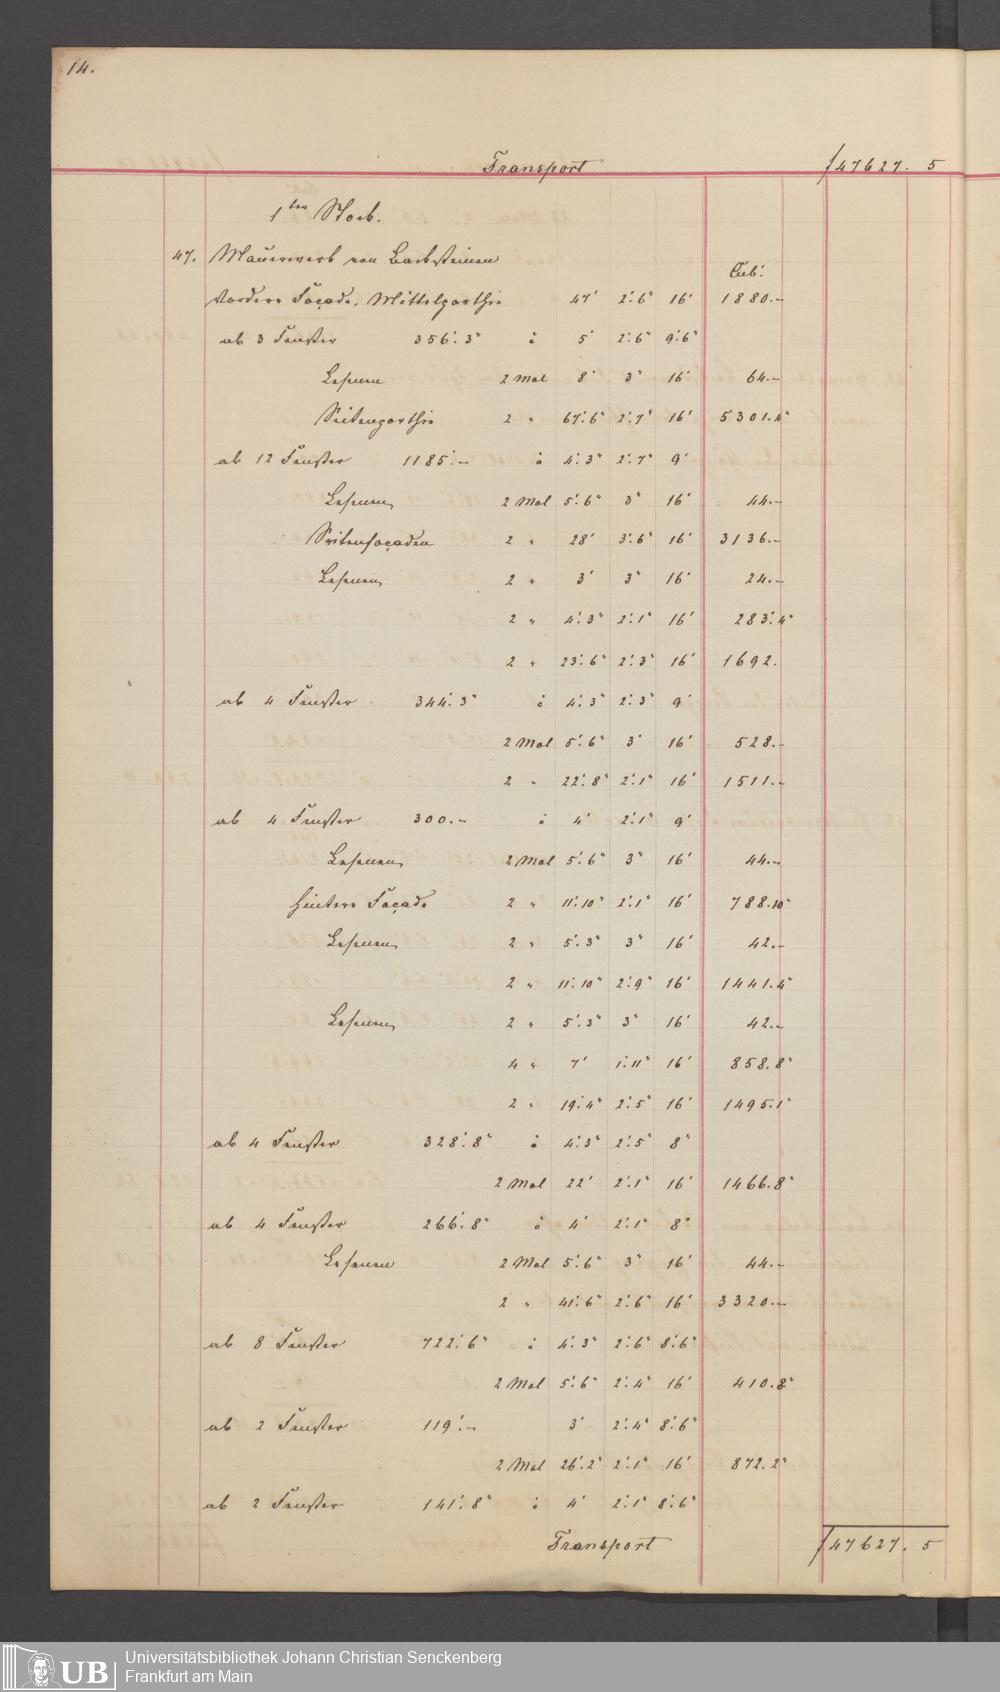 14.
Transport f 47627. 5
1ter Stock.
47. Mauerwerk von Backsteinen
Cub'.
Vordere Façade, Mittelparthie 47' 2'.6" 16' 1880.–
ab 3 Fenster 356'.3" à 5' 2'.6" 9'.6"
Lesenen 2 Mal 8' 3" 16' 64.–
Seitenparthie 2 " 67'.6" 2'.7" 16' 5301.4"
ab 12 Fenster 1185'.– à 4'.3" 2'.7" 9'
Lesenen 2 Mal 5'.6" 3" 16' 44.–
Seitenfaçaden 2 " 28' 3'.6" 16' 3136.–
Lesenen 2 " 3' 3" 16' 24.–
2 " 4'.3" 2'.1" 16' 283'.4"
2 " 23'.6" 2'.3" 16' 1692.
ab 4 Fenster 344'.3" à 4'.3" 2'.3" 9'
2 Mal 5'.6" 3' 16' 528.–
2 " 22'.8" 2'.1" 16' 1511.–
ab 4 Fenster 300.– à 4' 2'.1" 9'
Lesenen 2 Mal 5'.6" 3" 16' 44.–
Hintere Façade 2 " 11'.10" 2'.1" 16' 788.10"
Lesenen 2 " 5'.3" 3" 16' 42.–
2 " 11'.10" 2'.9" 16' 1441.4"
Lesenen 2 " 5'.3" 3" 16' 42.–
4 " 7' 1'.11" 16' 858.8"
2 " 19'.4" 2'.5" 16' 1495.1"
ab 4 Fenster 328'.8" à 4'.3" 2'.5" 8"
2 Mal 22' 2'.1" 16' 1466.8"
ab 4 Fenster 266'.8" à 4' 2'.1" 8"
Lesenen 2 Mal 5'.6" 3" 16' 44.–
2 " 41'.6" 2'.6" 16' 3320.–
ab 8 Fenster 722'.6" à 4'.3" 2'.6" 8'.6"
2 Mal 5'.6" 2'.4" 16' 410.8"
ab 2 Fenster 119'.– 3' 2'.4" 8'.6"
2 Mal 26'.2" 2'.1" 16' 872.2"
ab 2 Fenster 141'.8" à 4' 2'.1" 8'.6"
Transport f 47627. 5
UB Universitätsbibliothek Johann Christian Senckenberg
Frankfurt am Main